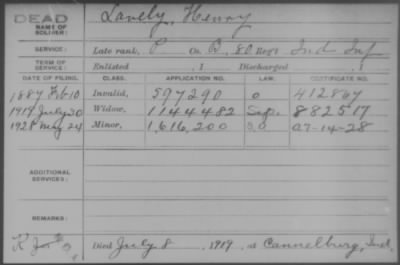 DEAD
NAME OF SOLDIER: Lavely, Henry
SERVICE: Late rank, P Co. B, 80 Reg't Ind Inf
TERM OF SERVICE: Enlisted , 1 Discharged , 1
DATE OF FILING. CLASS. APPLICATION NO. LAW. CERTIFICATE NO.
1887 Feb 10 Invalid, 597290 412867
1919 July 30 Widow, 1144482 882517
1928 May 24 Minor, 1,616,200 A7-14-28
ADDITIONAL SERVICES:
REMARKS:
Died July 8, 1919, at Cannelburg, Ind.